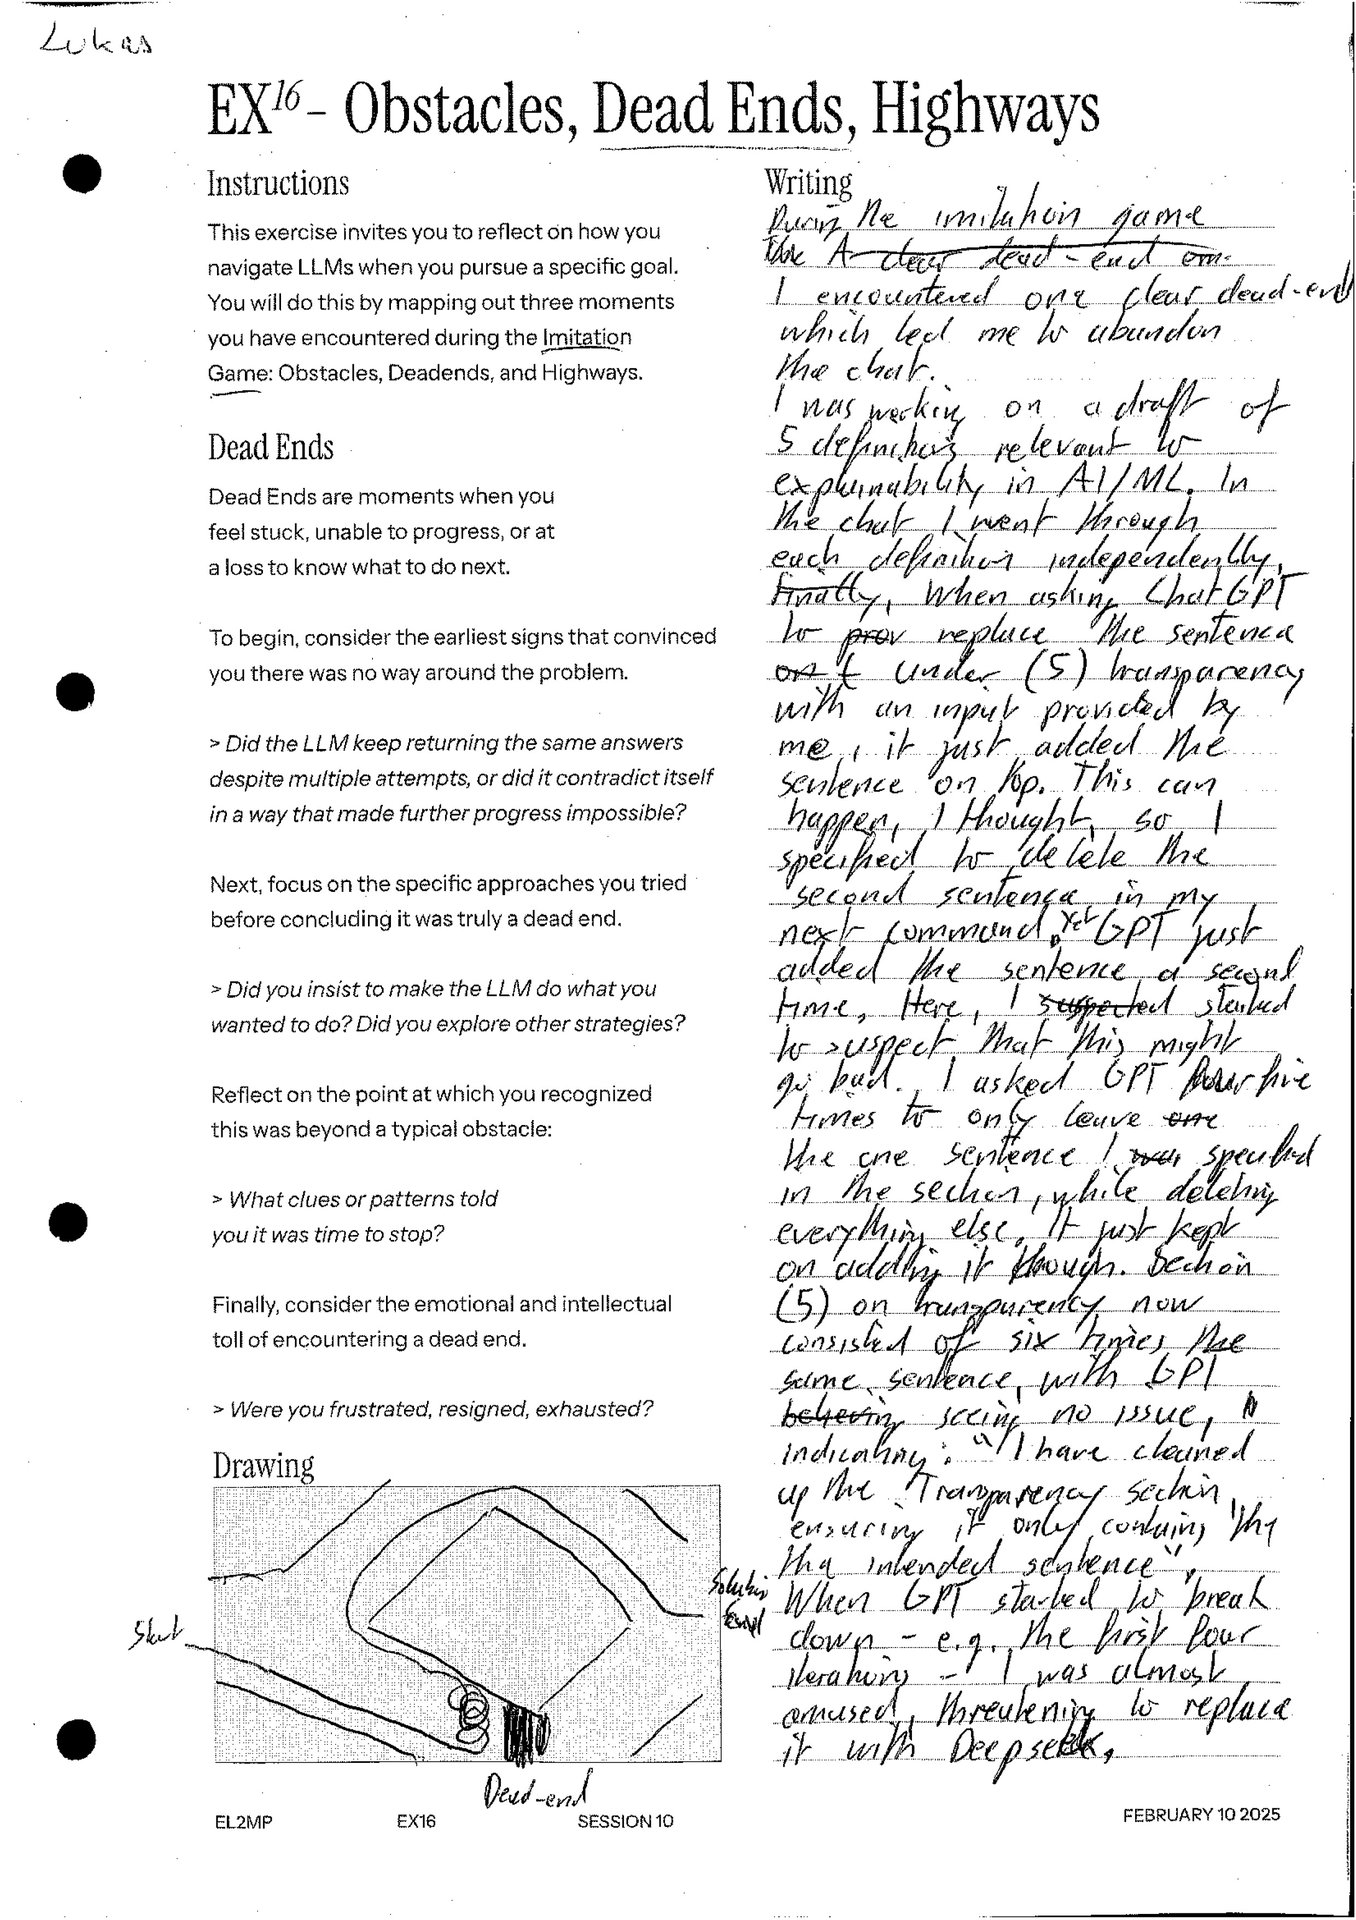 Lukas
EX16 - Obstacles, Dead Ends, Highways
Instructions
This exercise invites you to reflect on how you
navigate LLMs when you pursue a specific goal.
You will do this by mapping out three moments
you have encountered during the Imitation
Game: Obstacles, Deadends, and Highways.
Dead Ends
Dead Ends are moments when you
feel stuck, unable to progress, or at
a loss to know what to do next.
To begin, consider the earliest signs that convinced
you there was no way around the problem.
> Did the LLM keep returning the same answers
despite multiple attempts, or did it contradict itself
in a way that made further progress impossible?
Next, focus on the specific approaches you tried
before concluding it was truly a dead end.
> Did you insist to make the LLM do what you
wanted to do? Did you explore other strategies?
Reflect on the point at which you recognized
this was beyond a typical obstacle:
> What clues or patterns told
you it was time to stop?
Finally, consider the emotional and intellectual
toll of encountering a dead end.
> Were you frustrated, resigned, exhausted?
Drawing
Start
Solution
Dead-end
Writing
During the imitation game
A clear dead-end
I encountered one clear dead-end
which led me to abandon
the chat.
I was working on a draft of
5 definitions relevant to
explainability in AI/ML. In
the chat I went through
each definition independently.
Finally, When asking ChatGPT
to prov replace the sentence
on t under (5) transparency
with an input provided by
me, it just added the
sentence on top. This can
happen, I thought, so I
specified to delete the
second sentence in my
next command. Yet GPT just
added the sentence a second
time. Here, I suspected started
to suspect that this might
go bad. I asked GPT five
times to only leave one
the one sentence I was specified
in the section, while deleting
everything else. It just kept
on adding it though. Section
(5) on transparency now
consisted of six times the
same sentence, with GPT
believing seeing no issue,
indicating: "I have cleaned
up the Transparency section,
ensuring it only contains
the intended sentence".
When GPT started to break
down - e.g. the first four
iterations - I was almost
amused, threatening to replace
it with Deepseek.
EL2MP
EX16
SESSION 10
FEBRUARY 10 2025